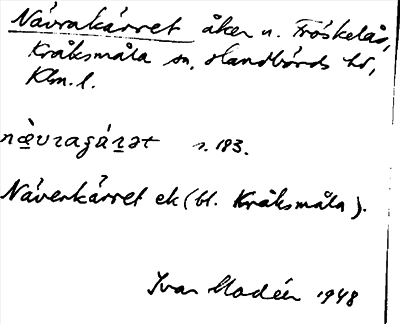 Návrakärret åker u. Fröskelås,
Kråksmåla sn, Handbörds hd,
Klm. l.
nævragárət s. 183.
Näverkärret ek (bl. Kråksmåla).
Ivar Modéer 1948